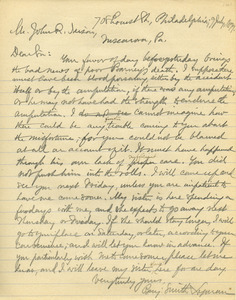 Philadelphia, July
Mr. John R.
Pa.
Dear Sir: Your favor of day before yesterday brings
the bad news of poor death. I suppose there
must have been blood poisoning either by the accident
itself or by the amputation, if there was any amputation,
or he may not have had the strength to endure the
amputation. I cannot imagine how
there could be any trouble owing to you about
the misfortune, for you could not be blamed
at all on account of it. It must have happened
through his own lack of care. You did
not push him into the rolls. I will come up and
see you next Friday, unless you are impatient to
have me come sooner. My sister is here spending a
few days with me, and she expects to go away about
Thursday or Friday. If she should stay longer, I will
go to your place on Saturday, or later, according to your
convenience; and will let you know in advance. If
you particularly wish me to come sooner, please let me
know, and I will leave my sister here for one day.
Very truly yours,
Benj. Smith Lyman